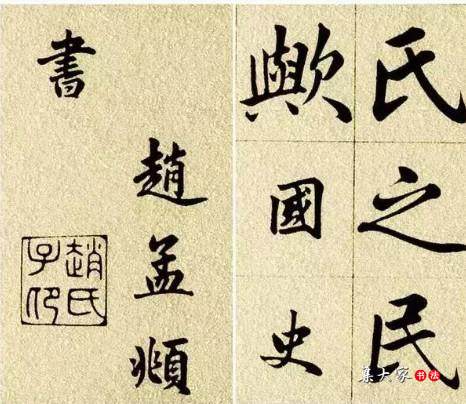 氏之民
歟國史
趙孟頫
書
趙氏子昂
集大家书法